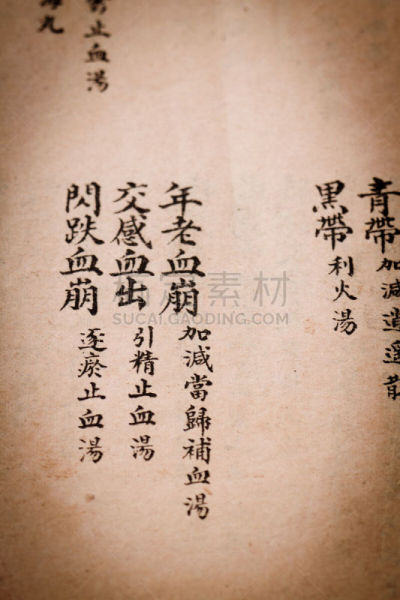 青帶 加減逍遙散
黑帶 利火湯
年老血崩 加減當歸補血湯
交感血出 引精止血湯
閃跌血崩 逐瘀止血湯
止血湯
丸
搞定素材
SUCAI.GAODING.COM